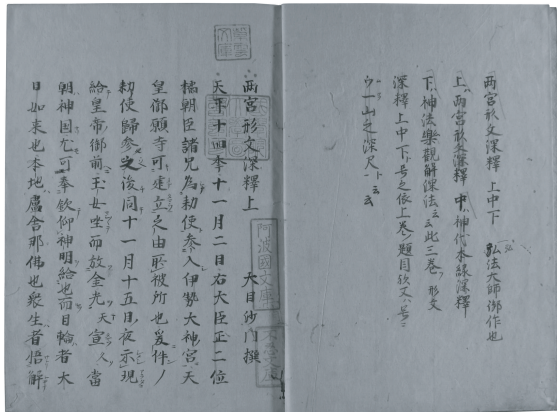 両宮形文深釋 上中下 弘法大師御作也
上ハ両宮形文深釋 中ハ神代本縁深釋
下ハ神法樂觀解深法云云此三巻ノ形文
深釋上中下ト号之依上巻ノ題目欤又ハ号
一山之深尺ト云云
両宮形文深釋上
大日沙門撰
天平十四年十一月二日右大臣正二位
橘朝臣諸兄為勅使参入伊勢大神宮天
皇御願寺可建立之由所被祈也爰件ノ
勅使歸参之後同十一月十五日夜示現
給皇帝御前玉女坐而放金光天宣久當
朝神国尤可奉欽仰神明給也而日輪者大
日如来也本地盧舎那佛也衆生者悟解
阿波國文庫